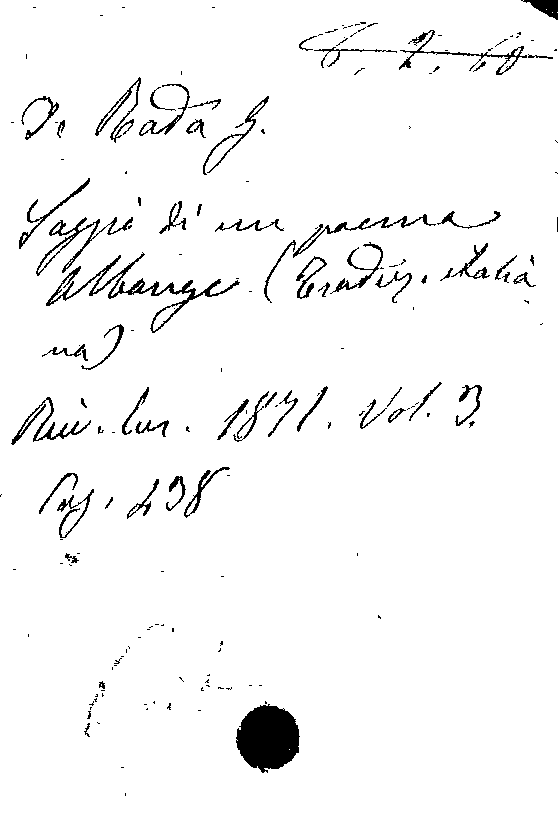 6. 2. 60
De Rada G.
Saggio di un poema
Albanese (Traduz. italia
na)
Riv. Eur. 1871. Vol. 3.
Pag. 238